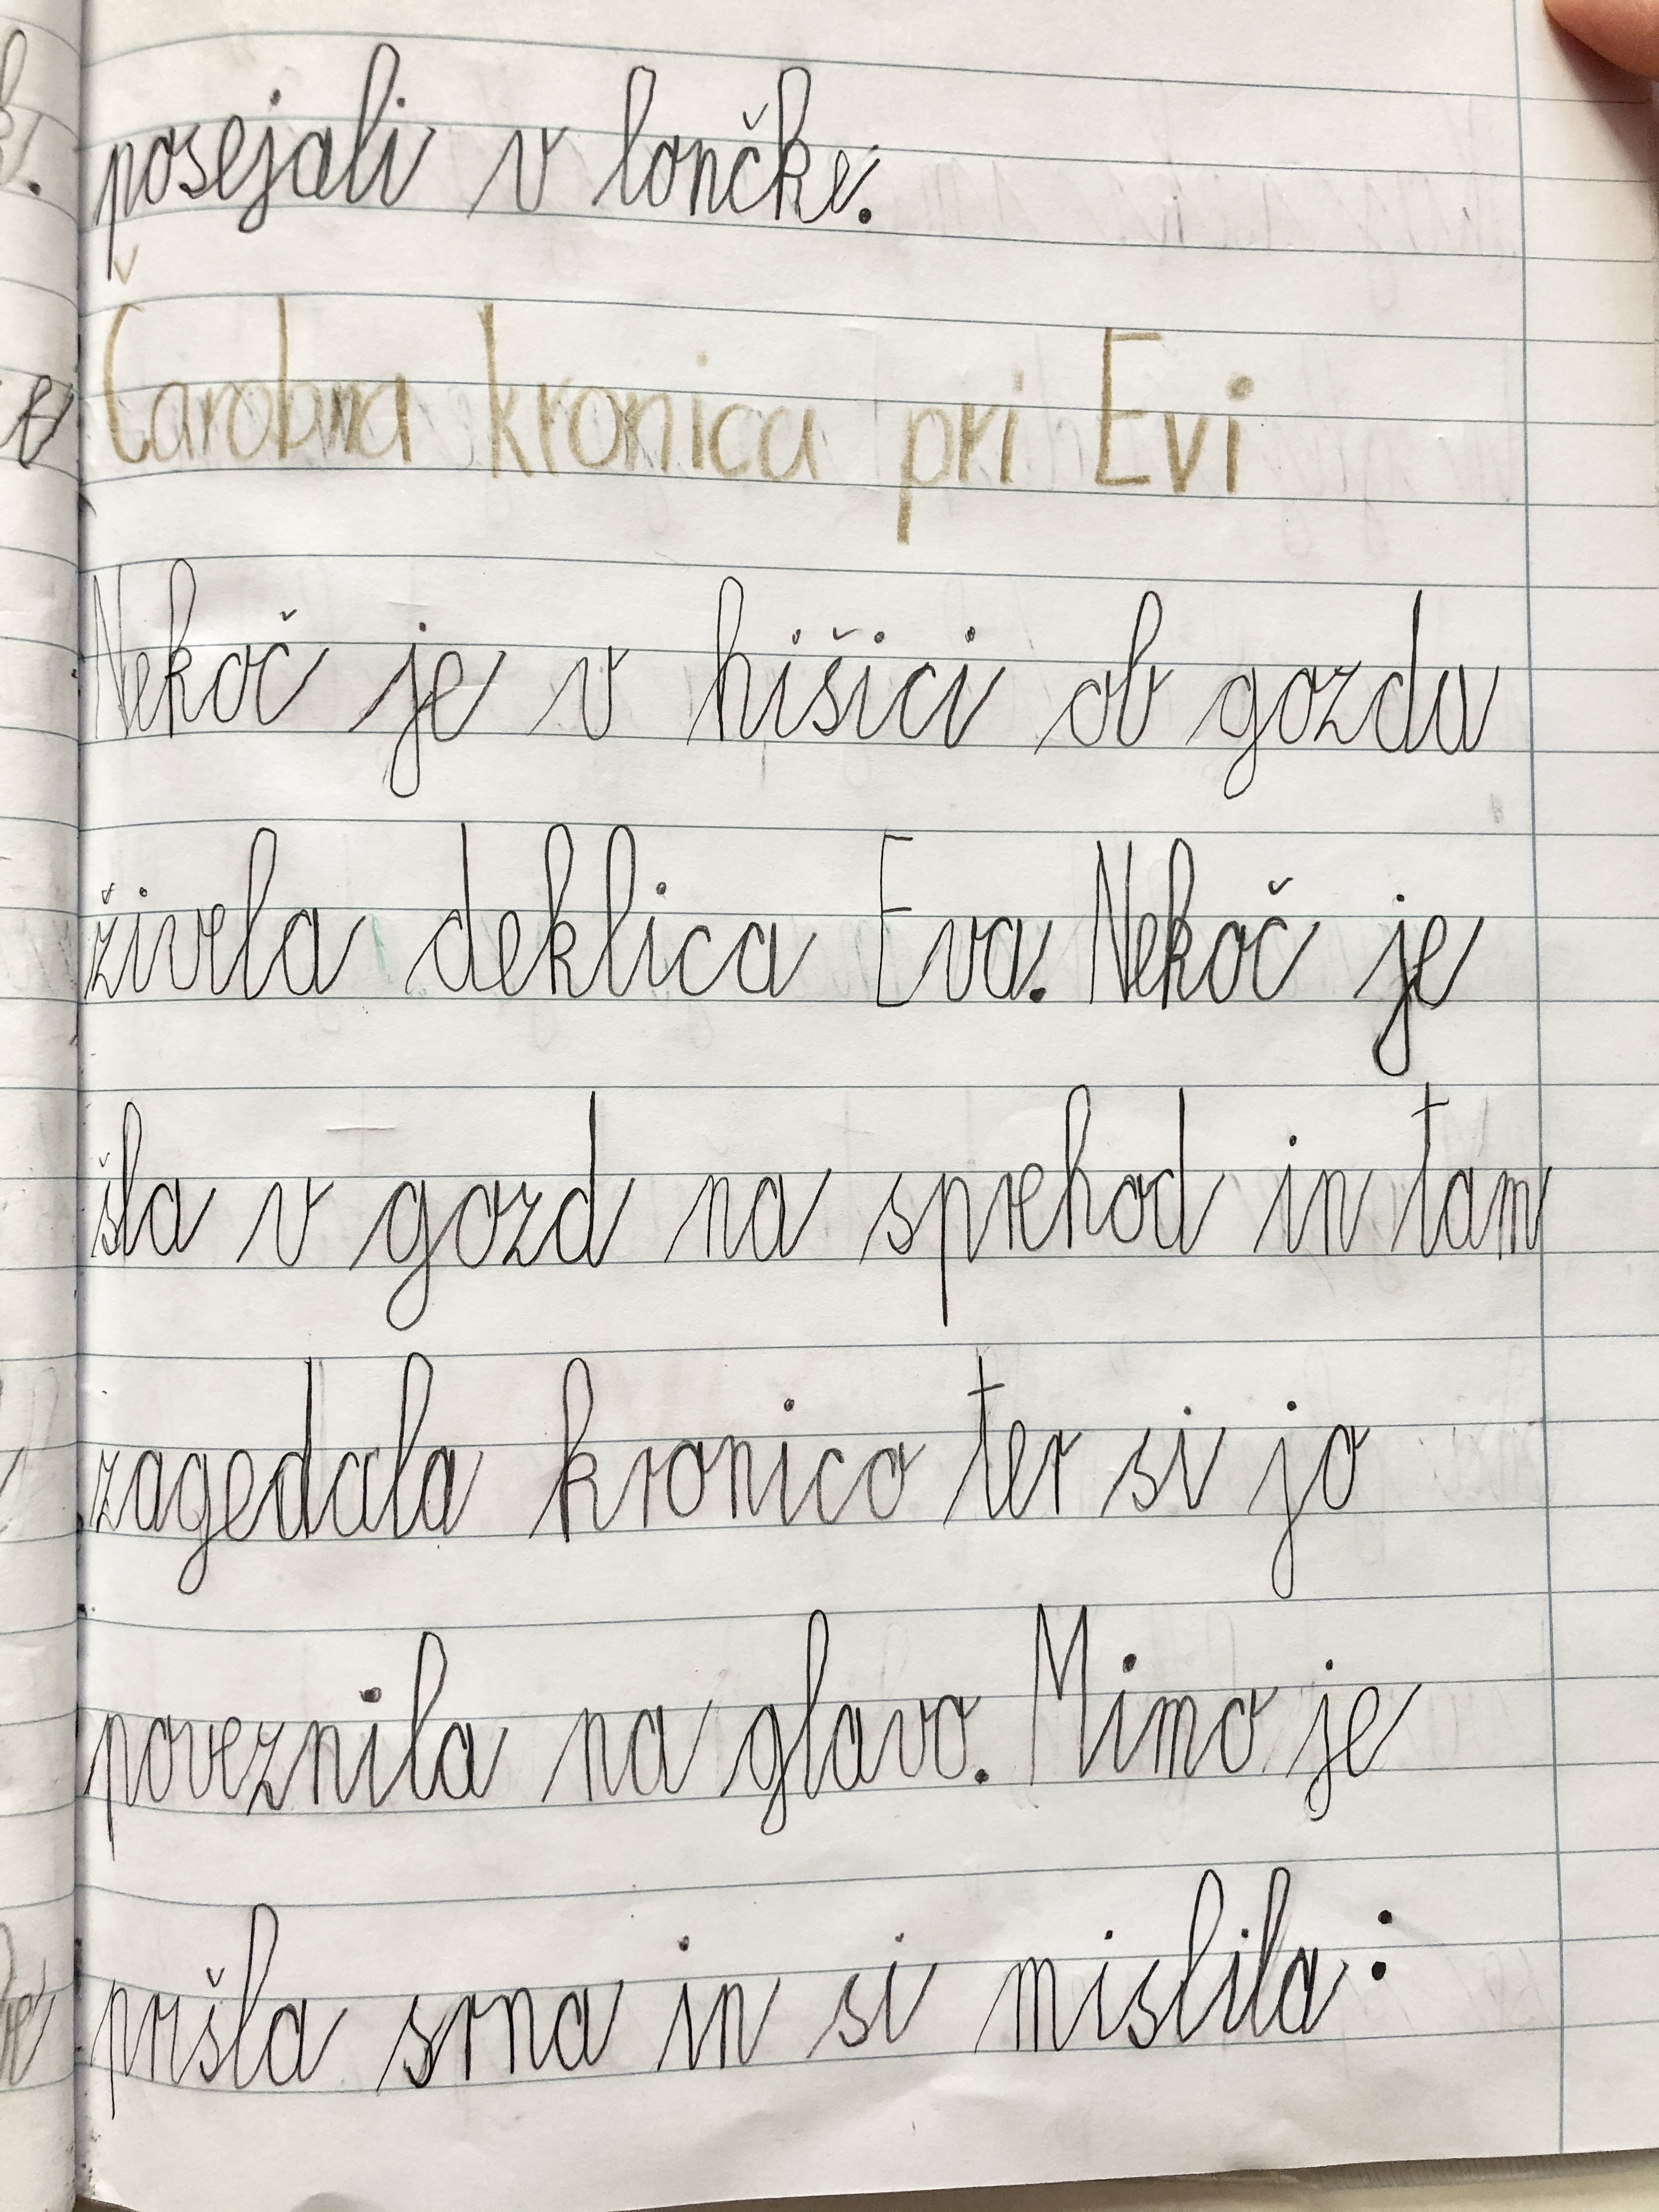 posejali v lončke.
Čarobna kronica pri Evi
Nekoč je v hišici ob gozdu
živela deklica Eva. Nekoč je
šla v gozd na sprehod in tam
zagedala kronico ter si jo
poveznila na glavo. Mimo je
pršla srna in si mislila: